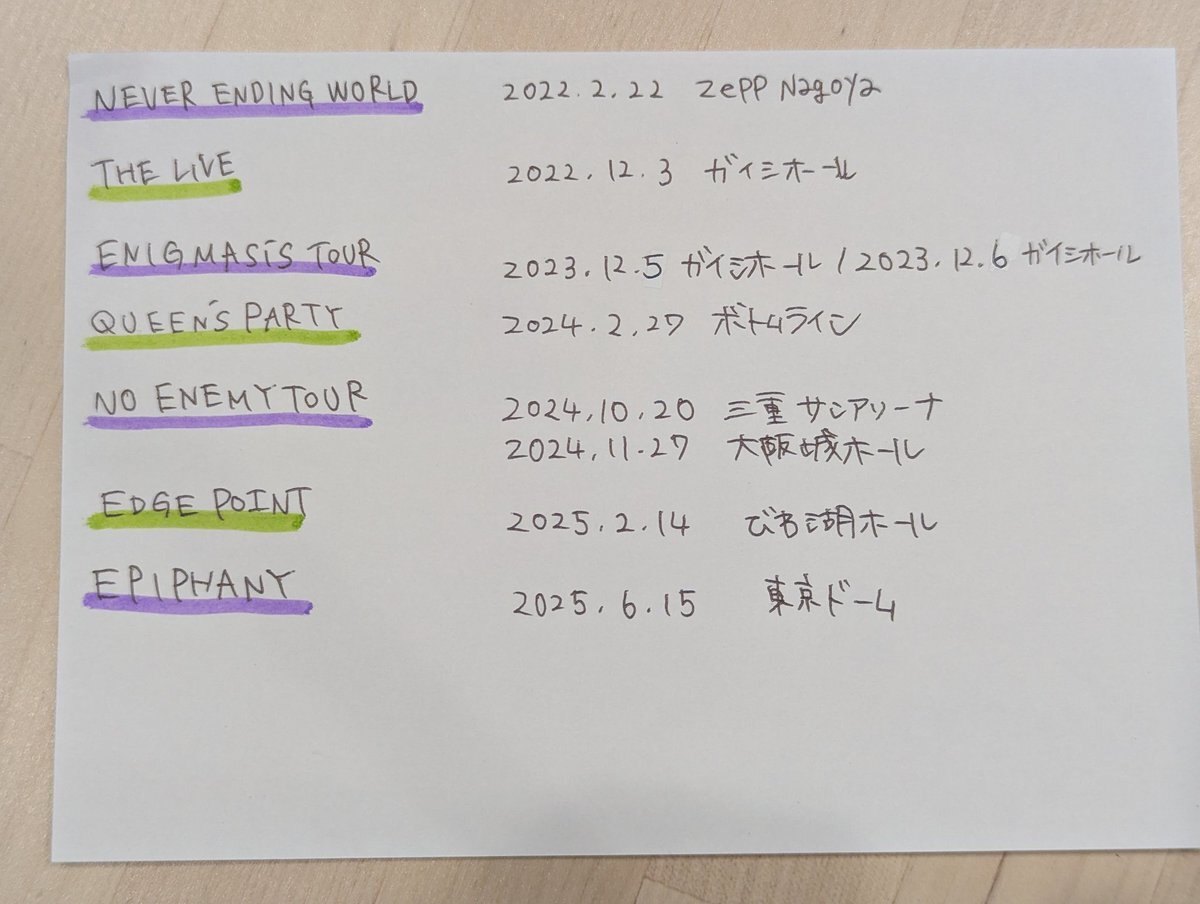 NEVER ENDING WORLD 2022.2.22 Zepp Nagoya
THE LIVE 2022.12.3 ガイシホール
ENIGMASIS TOUR 2023.12.5 ガイシホール / 2023.12.6 ガイシホール
QUEEN'S PARTY 2024.2.27 ボトムライン
NO ENEMY TOUR 2024.10.20 三重サンアリーナ
2024.11.27 大阪城ホール
EDGE POINT 2025.2.14 びわ湖ホール
EPIPHANY 2025.6.15 東京ドーム